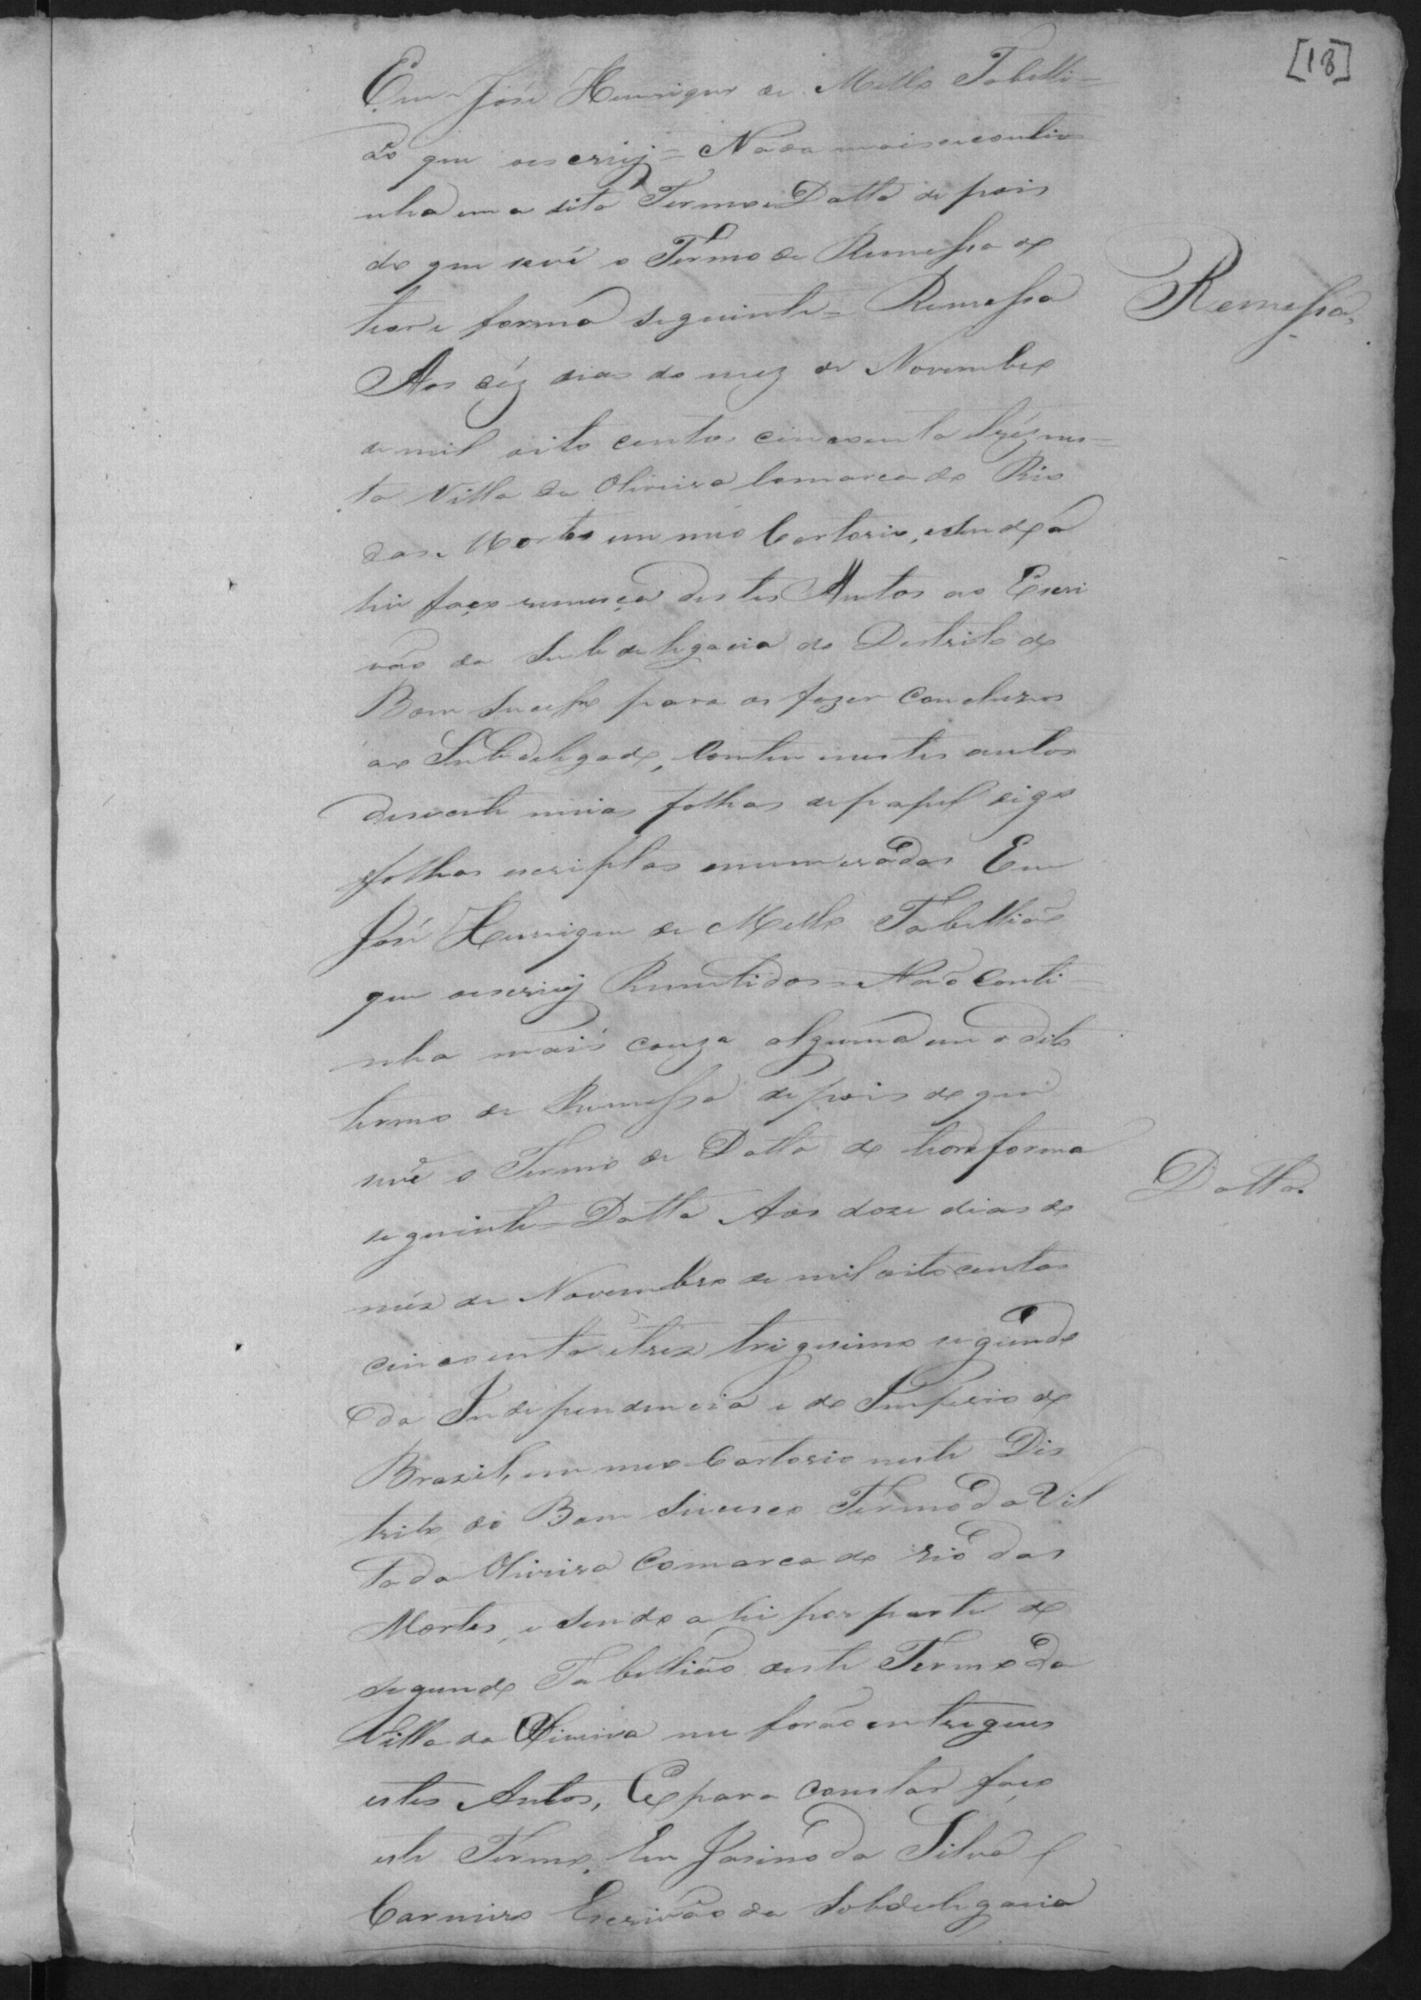 [18]
Eu José Henrique de Mello Tabelli=
ão que oescrivj = Nada mais secontin
nha em a dita Termo e Datta de pois
do que sevê o Termo de Remessa do
theor e forma seguinte = Remessa
Remessa.
Aos déz dias do mez de Novembro
de mil oito centos cincoenta etréz nes=
ta Villa da Oliveira Comarca do Rio
das Mortes em meo Cartorio, esendo a
hi faço remeça destes Autos ao Escri
vão da Subdelegacia do Destrito do
Bom Sucesso para os fazer concluzos
ao Subdelegado, Contem nestes autos
desente meias folhas de papel digo
folhas escriptas enumeradas Eu
José Henrique de Mello Tabellião
que oescrivj Remetidos = Não conti=
nha mais couza alguma em o dito
termo de Remessa de pois do que
sevê o Termo de Datta do theor eforma
Datta.
seguinte = Datta Aos doze dias do
méz de Novembro de mil oito centos
cincoenta etrez trigesimo segundo
da Independencia e do Imperio do
Brazil, em meo Cartorio neste Dis
trito do Bom Sucesso Termo da Vil
la da Oliveira Comarca do rio das
Mortes, e sendo a hi por parte do
segundo Tabellião deste Termo da
Villa da Oliveira me forão entregues
estes Autos, E para constar faço
este Termo, Eu Josino da Silva
Carneiro Escrivão da Sobdelegacia